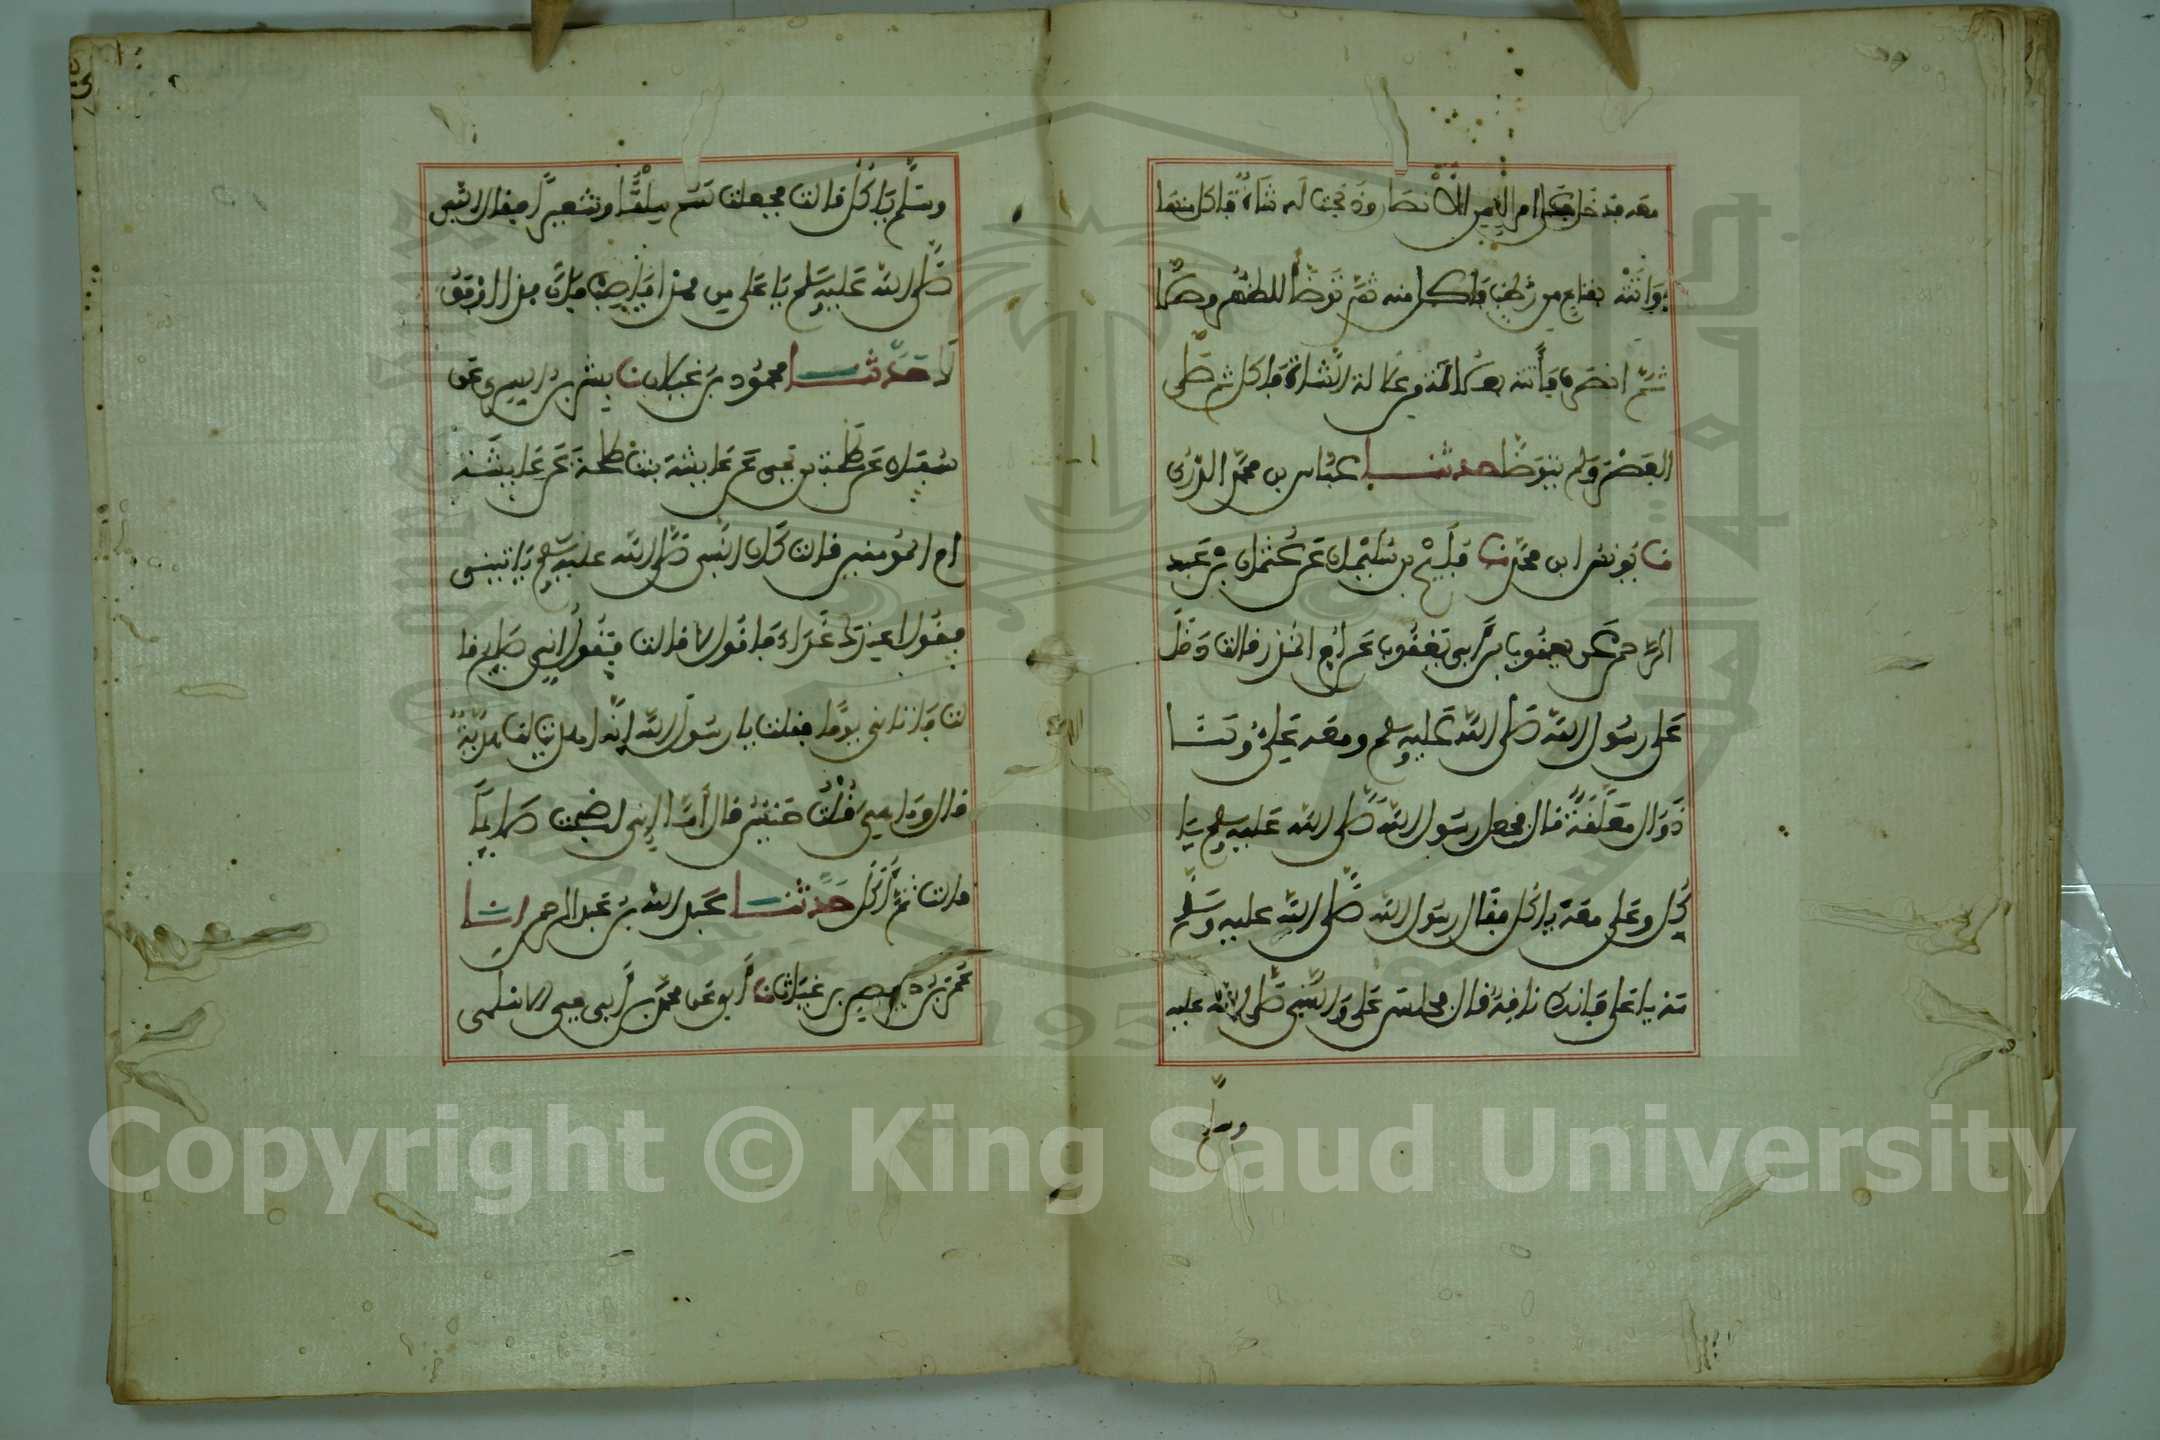 معه فدخل على امراة من الانصار فذبحت له شاة فاكل منها
واتته بقناع من رطب فاكل منه ثم توضأ للظهر وصلى
ثم انصرف فأتته بعلالة من علالة الشاة فاكل ثم صلى
العصر ولم يتوضأ حدثنا عباس بن محمد الدوري
نا يونس ابن محمد نا فليح بن سليمان عن عثمان بن عبد
الرحمن عن يعقوب بن أبي يعقوب عن ام المنذر قالت دخل
على رسول الله صلى الله عليه وسلم ومعه علي ولنا
دوال معلقة قال فجعل رسول الله صلى الله عليه وسلم يا
كل وعلي معه ياكل فقال رسول الله صلى الله عليه وسلم
مه يا علي فانك ناقه قال فجلس علي والنبي صلى الله عليه
وسلم
وسلم ياكل قالت فجعلت لهم سلقا وشعيرا فقال النبي
صلى الله عليه وسلم يا علي من هذا فاصب فان هذا اوفق
لك حدثنا محمود بن غيلان نا بشر بن السري عن
سفيان عن طلحة بن يحيى عن عايشة بنت طلحة عن عايشة
ام المؤمنين قالت كان النبي صلى الله عليه وسلم ياتيني
فيقول اعندك غداء فاقول لا قالت فيقول اني صايم قا
لت فاتاني يوما فقلت يا رسول الله انه اهديت لنا هدية
قال وما هي قلت حيس قال أما اني اصبحت صايما
قالت ثم اكل حدثنا عبد الله بن عبد الرحمن انا
عمر بن حفص بن غياث نا أبي عن محمد بن أبي يحيى الاسلمي
Copyright © King Saud University
1957